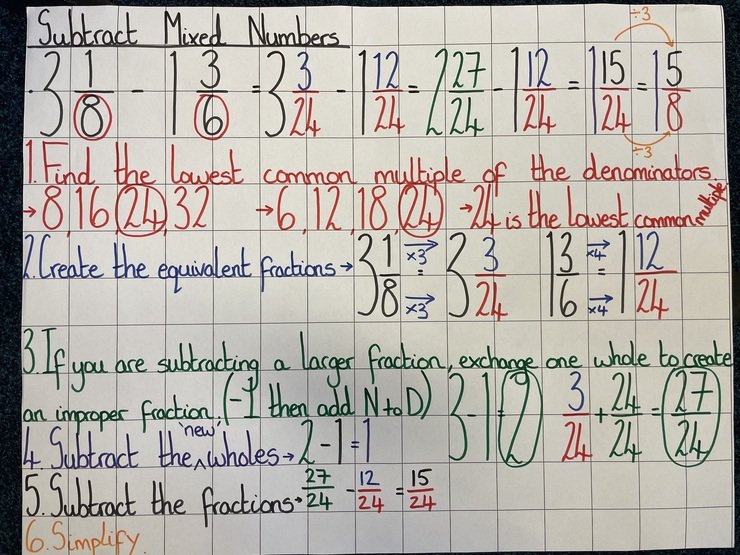 Subtract Mixed Numbers
÷3
3 1/8 - 1 3/6 = 3 3/24 - 1 12/24 = 2 27/24 - 1 12/24 = 1 15/24 = 1 5/8
÷3
1. Find the lowest common multiple of the denominators.
→ 8, 16, 24, 32 → 6, 12, 18, 24 → 24 is the lowest common multiple
2. Create the equivalent fractions → 3 1/8 ×3 = ×3 3 3/24 1 3/6 ×4 = ×4 1 12/24
3. If you are subtracting a larger fraction, exchange one whole to create
an improper fraction. (-1 then add N to D) 3-1=2 3/24 + 24/24 = 27/24
4. Subtract the 'new' wholes → 2-1=1
5. Subtract the fractions → 27/24 - 12/24 = 15/24
6. Simplify.